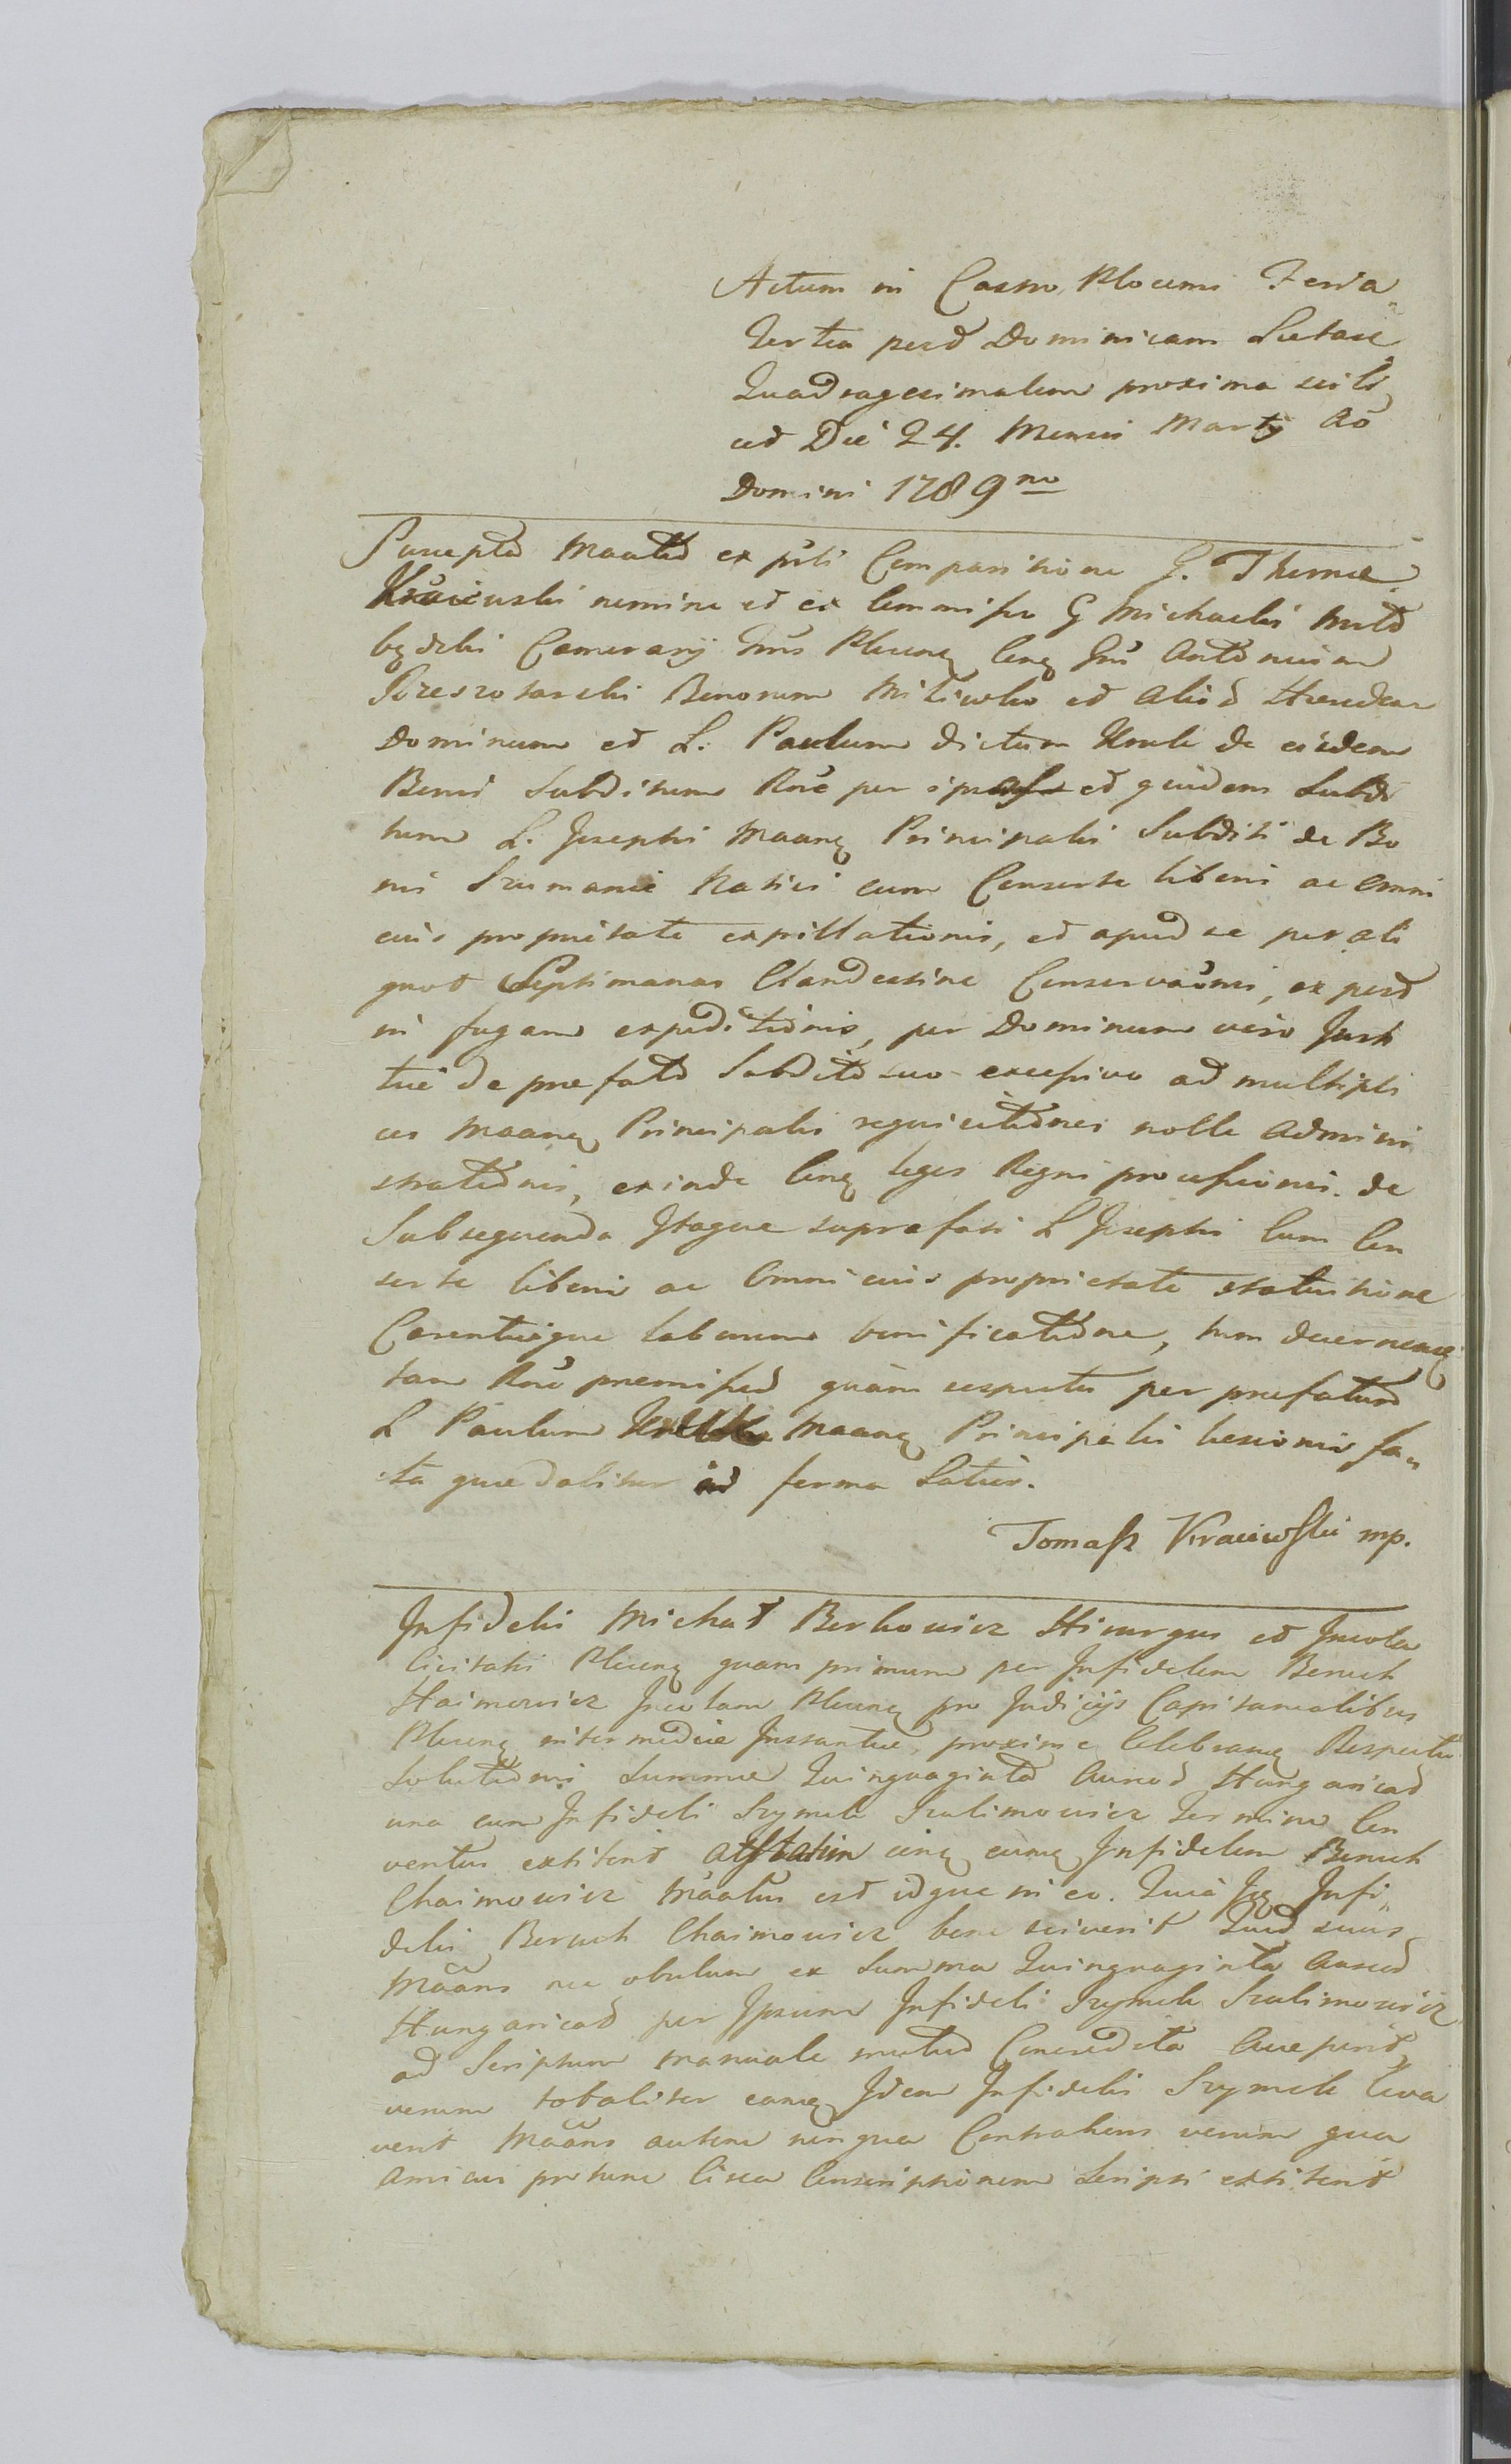 Actum in Castro Plocensi Feria
Tertia post Dominicam Laetare
Quadragesimalem proxima scili
cet Die 24. Mensis Martij Ao
Domini 1789no
Suscepta ex Comparitione G. Thomae
Kraiewski nomine et ex commisso G Michaelis
Camerarij Plocens cong Antonium
Bonorum et aliors Haeredem
Dominum et L. Paulum dictum de eisdem
Bonis Subditum Rnē per et quidem Subdi
tum L. Josephi Maang Principalis Subditi de Bo
nis Nativi cum Consorte liberis ac omni
eius proprietate expillationis, et apud se per ali
quot Septimanas Clandestine Conservaōnis, ex post
in fugam expeditionis, per Dominum vero Justi
tiae de praefato Subdito suo excessivo ad multipli
ces Maang Principalis requisitiones nolle admini
strationis, exinde cong leges Regni processionis. de
Subsequenda Itaque suprafati L Josephi Cum Con
sorte liberis ac Omni eius proprietate statuitione
Carentiaque laborum bonificatione, tum
tam Rnē praemissors quàm respectu per praefatum
L Paulum Maang Principalis laesionis fa„
cta quae dabitur in forma Latior.
Tomasz Kraiewski mp.
Infidelis Michał Berkowicz Hirurgus et Incola
Civitatis Plocens quam primum per Infidelem Beruch
Haimowicz Incolam Plocens pro Judicijs Capitanealibus
Plocens intermediae Instantiae, proxime Celebrans Respectu
Solutionis Summae Quinquaginta Aureors Hungaricors
una cum Infideli Szymele Szalimowicz Termino Con
ventus extiterit cong eumq Infidelem Beruch
Chaimowicz Maatus est idque in eo. Quià Infi„
delis Beruch Chaimowicz bene sciverit Quod suus
Maans nec obulum ex Summa Quinquaginta Aureors
Hungaricors per Ipsum Infideli Szymele Szalimowicz
ad Scriptum manuale mutuo Concredita acceperit
verum totaliter eamq Idem Infidelis Szymele leva
verit Maans autem non qua Contrahens verum qua
amicus pro tunc Circa Conscriptionem Scripti extiterit